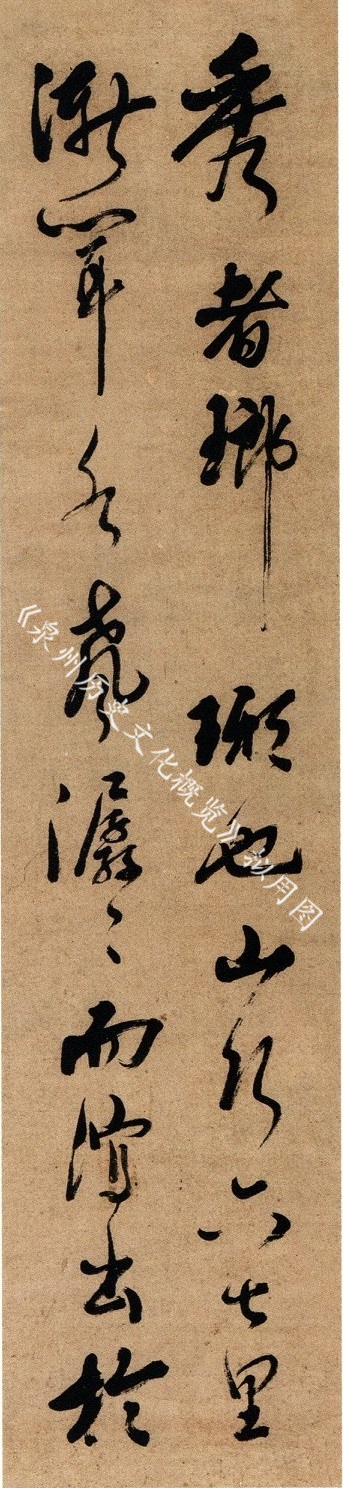 秀者瑯琊也山行六七里
漸聞水聲潺〻而瀉出於
《泉州历史文化概览》拟用图